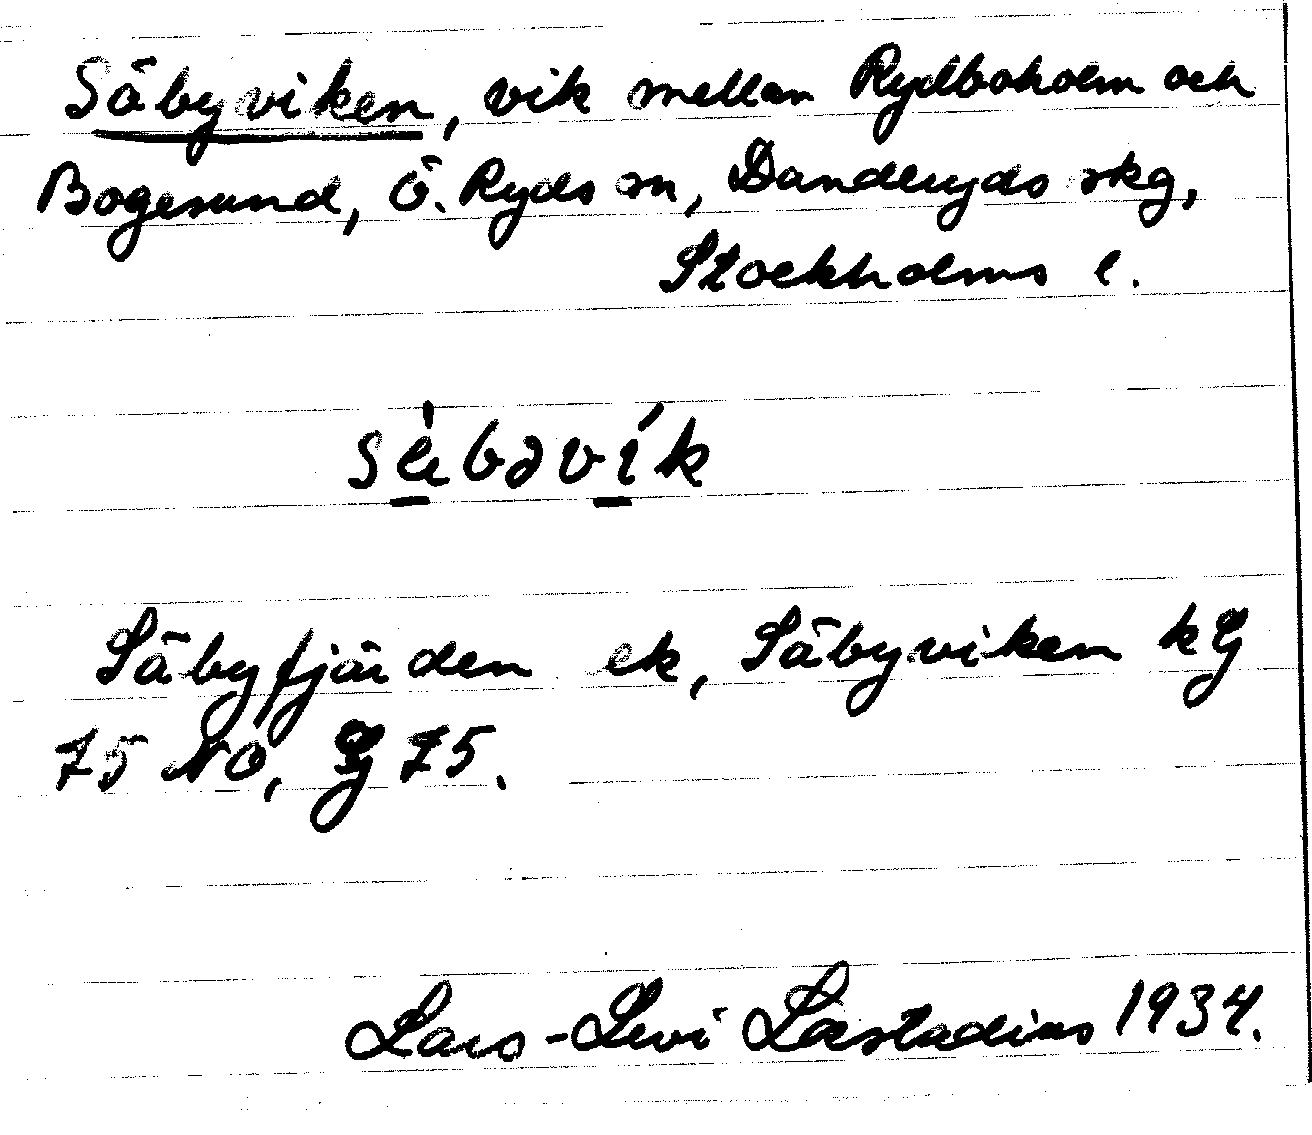 Säbyviken, vik mellan Rydboholm och
Bogesund, Ö. Ryds sn, Danderyds skg,
Stockholms l.
sèbəvík
Säbyfjärden ek, Säbyviken kG
75 NO, G 75.
Lars-Levi Læstadius 1934.